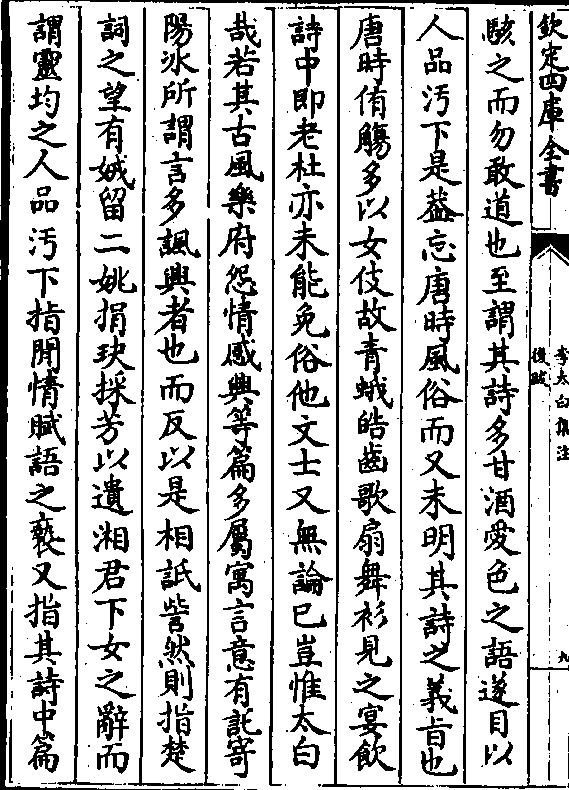 欽定四庫全書
李太白集注
後跋
九
駭之而勿敢道也至謂其詩多甘酒愛色之語遂目以
人品汚下是葢忘唐時風俗而又未明其詩之義旨也
唐時侑觴多以女伎故青蛾皓齒歌扇舞衫見之宴飲
詩中即老杜亦未能免俗他文士又無論已豈惟太白
哉若其古風樂府怨情感興等篇多屬寓言意有託寄
陽冰所謂言多諷興者也而反以是相詆訾然則指楚
詞之望有娀留二姚捐玦採芳以遺湘君下女之辭而
謂靈均之人品汚下指閒情賦語之䙝又指其詩中篇